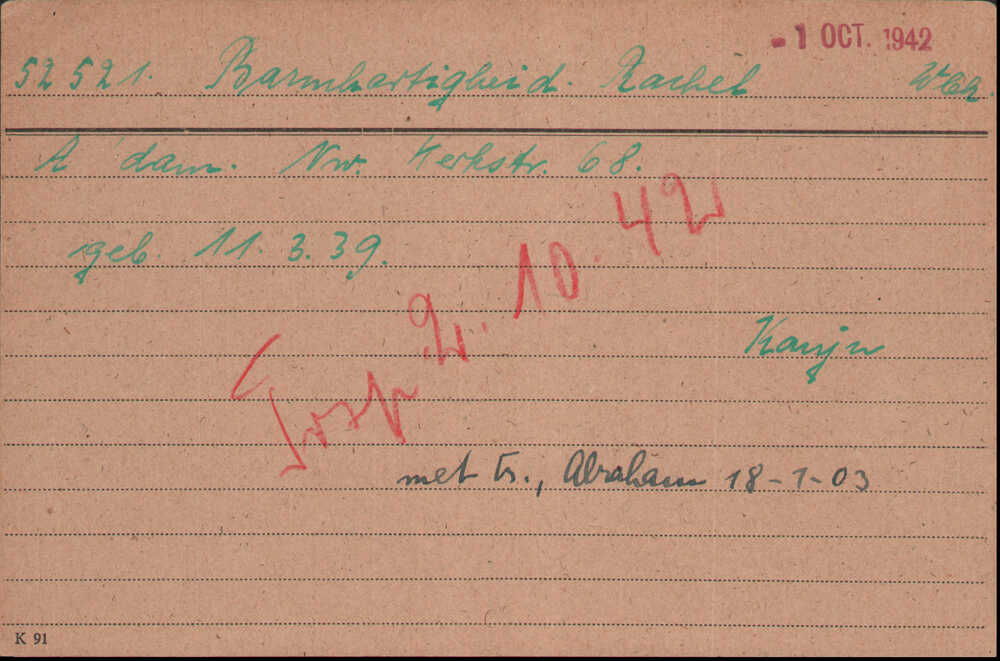 - 1 OCT. 1942
52521. Barmhartigheid. Rachel
A'dam. Nw. Kerkstr. 68.
geb. 11. 3. 39.
Trsp 2. 10. 42
met tr., Abraham 18-1-03
K 91